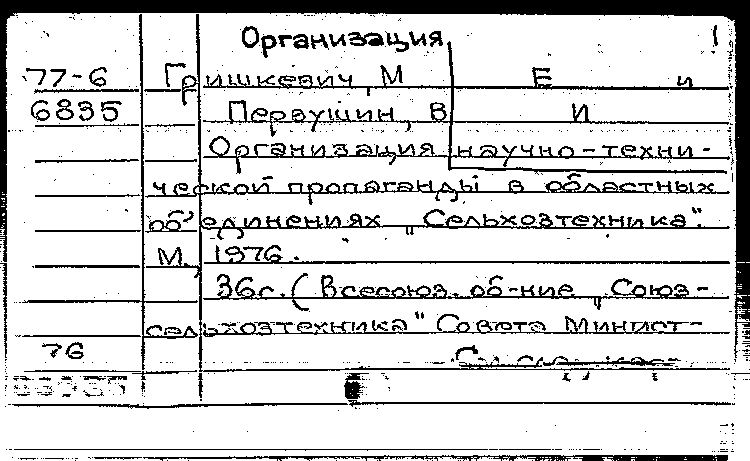 Организация 1
77-6 Гришкевич, М Е и
6835 Первушин, В И
Организация научно-техни-
ческой пропаганды в областных
об'единениях „Сельхозтехника".
М., 1976.
36с. (Всесоюз. об-ние „Союз-
сельхозтехника" Совета Минист-
76